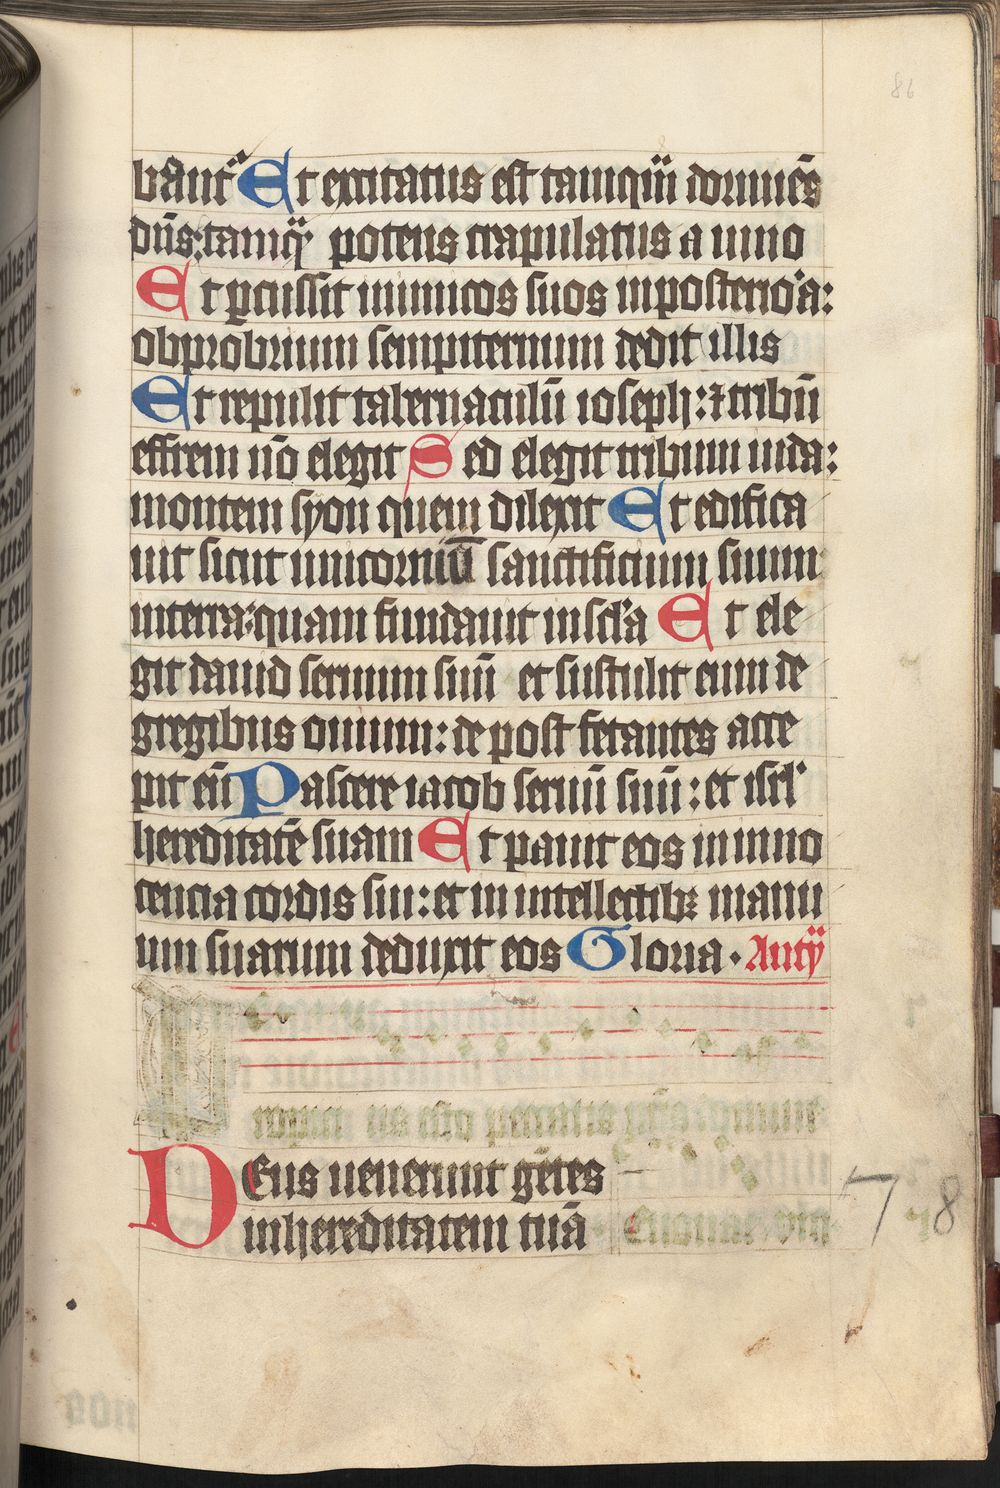 86
bant᷑ Et excitatus est tamqᷓm dormiēs
dn̄s: tamqᷓ potens crapulatus a uino
Et ꝑcussit inimicos suos inposterioᷓa:
obprobrium sempiternum dedit illis
Et repulit tabernaculū ioseph: ⁊ tribū
effrem nō elegit Sed elegit tribum iuda:
montem syon quem dilexit Et edifica
uit sicut unicorniū sanctificium suum
interra: quam fundauit in sclᷓa Et ele
git dauid seruum suū et sustulit eum de
gregibus ouium: de post fetantes acce
pit eū Pascere iacob seruū suū: et isrl᷑
hereditatē suam Et pauit eos in inno
cencia cordis sui: et in intellectibꝫ manu
um suarum deduxit eos Gloria · Antyᷓ
Deus uenerunt gētes
inhereditatem tuā
78